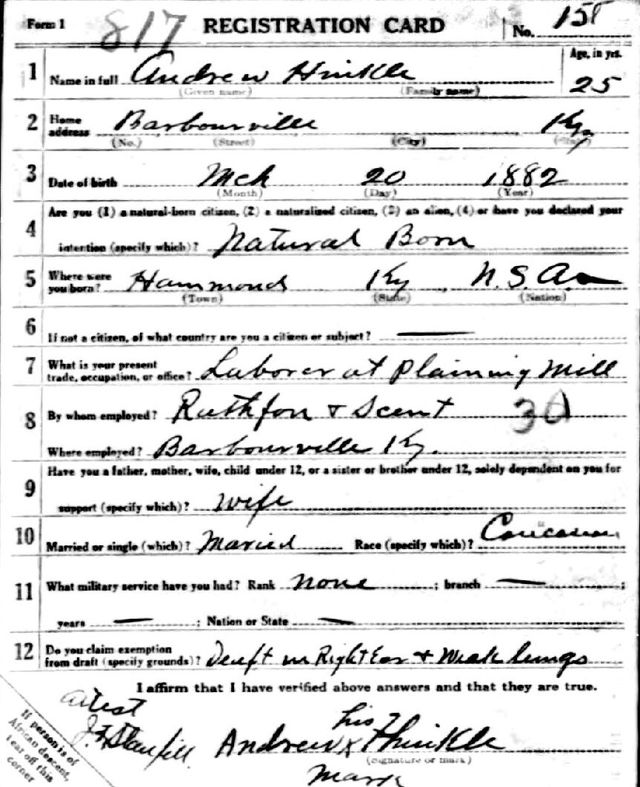 Form 1 817 REGISTRATION CARD No. 158
1 Name in full Andrew Hinkle Age, in yrs. 25
(Given name) (Family name)
2 Home address Barbourville Ky.
(No.) (Street) (City) (State)
3 Date of birth Mch 20 1882
(Month) (Day) (Year)
4 Are you (1) a natural-born citizen, (2) a naturalized citizen, (3) an alien, (4) or have you declared your
intention (specify which)? Natural Born
5 Where were you born? Hammond Ky U.S.A.
(Town) (State) (Nation)
6 If not a citizen, of what country are you a citizen or subject? —
7 What is your present trade, occupation, or office? Laborer at Plaining Mill
8 By whom employed? & 30
Where employed? Barbourville Ky.
9 Have you a father, mother, wife, child under 12, or a sister or brother under 12, solely dependent on you for
support (specify which)? Wife
10 Married or single (which)? Maried Race (specify which)? Caucasian
11 What military service have you had? Rank none ; branch — ;
years — ; Nation or State —
12 Do you claim exemption from draft (specify grounds)? Deaft in Right Ear & Weak lungs
I affirm that I have verified above answers and that they are true.
attest his
Andrew X Hinkle
(Signature or mark)
Mark
If person is of
African descent,
tear off this
corner